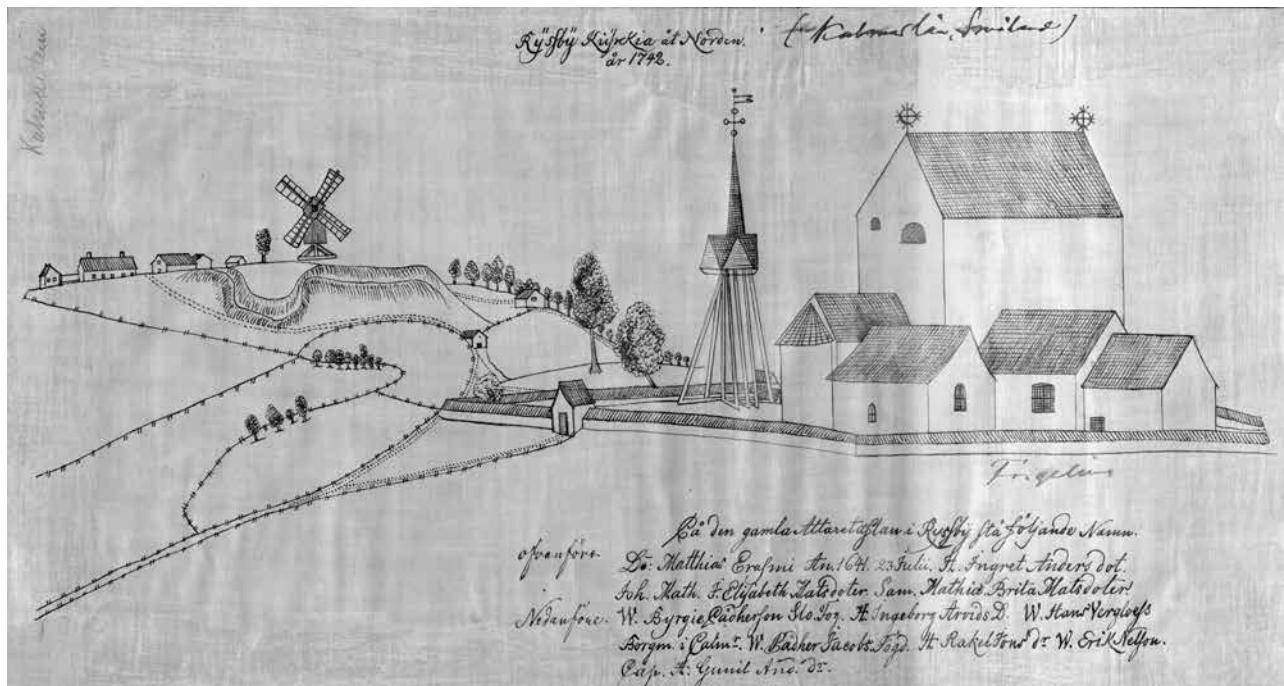 Kalmar län
Ryssby Kyrckia åt Norden. (Kalmar län, Småland)
år 1742.
Frigelius
På den gamla Altaretaflan i Ryssby stå följande Namn.
ofvanföre. Ds. Matthias Erasmi An. 1641. 23 Julii. H. Ingret Anders dot.
Joh. Math. F. Elisabeth Matsdoter. Sam. Mathiæ Brita Matsdoter
Nedanföre. W. Byrgie Pädherson Slo.Fog. H. Ingeborg Arvids D. W. Hans
Borgm. i Calmr. W. Pädher Jacobs. Fogd. H. Rakel Jons dr W. Erik Nelson.
Cap. H. Gunil And. dr.